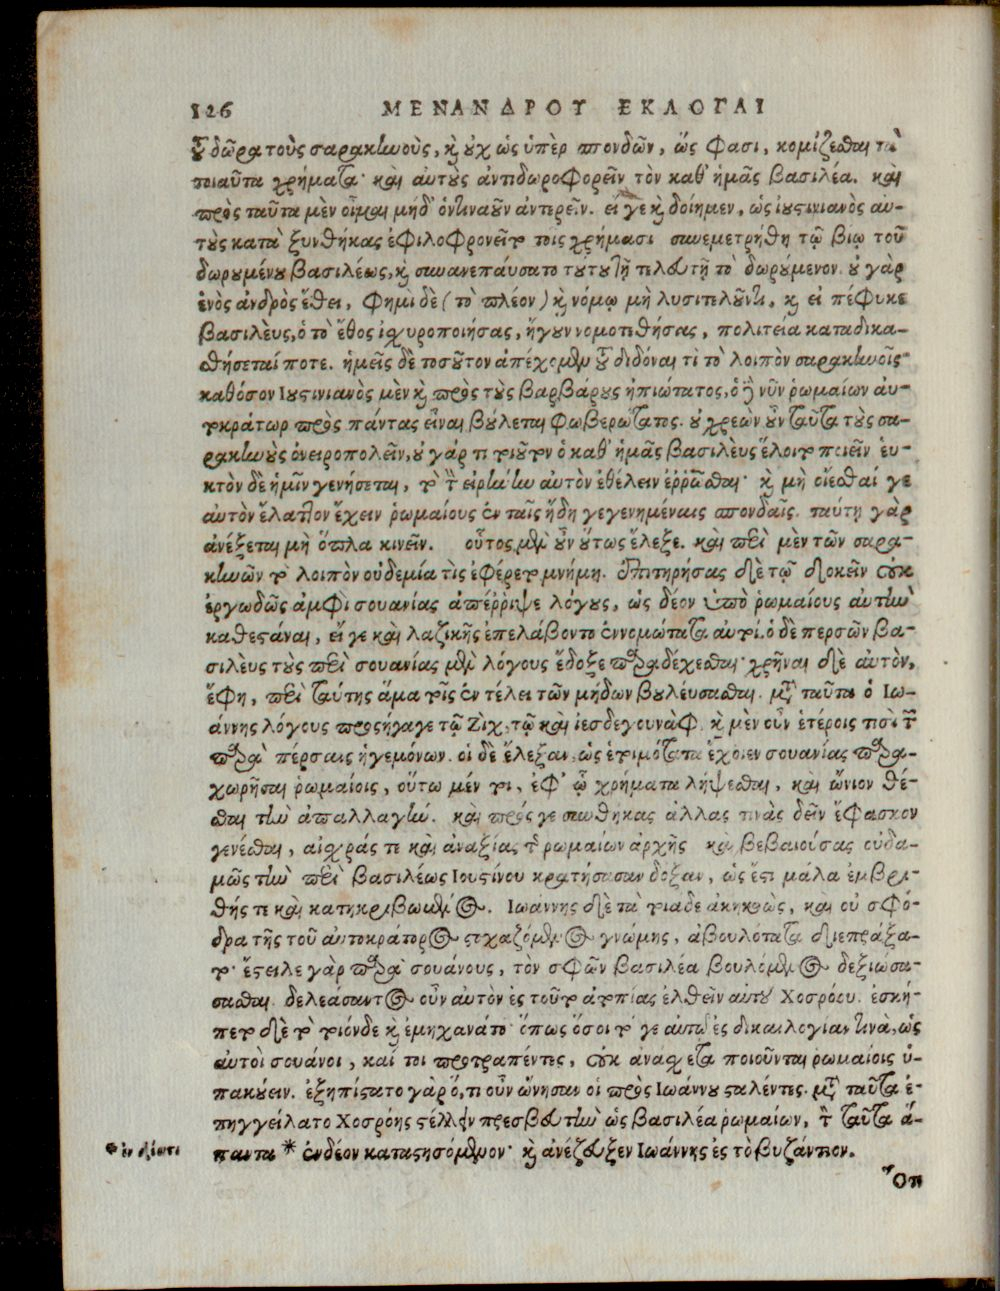 126 ΜΕΝΑΝΔΡΟΥ ΕΚΛΟΓΑΙ
τοῦ δῶρα τοὺς σαρακηνοὺς, καὶ οὐχ ὡς ὑπὲρ σπονδῶν, ὥς φασι, κομίζεσθαι τὰ
τοιαῦτα χρήματα· καὶ αὐτοὺς ἀντιδωροφορεῖν τὸν καθ' ἡμᾶς βασιλέα. καὶ
πρὸς ταῦτα μὲν οἶμαι μήδ' ὁντιναοῦν ἀντιρεῖν. εἰ γε καὶ δοίημεν, ὡς ἰουστινιανὸς αὐ-
τοὺς κατὰ ξυνθήκας ἐφιλοφρονεῖτο τοῖς χρήμασι συνεμετρήθη τῷ βίῳ τοῦ
δωρουμένου βασιλέως, καὶ συνανεπαύσατο τούτου τῇ τελευτῇ τὸ δωρούμενον. οὐ γὰρ
ἑνὸς ἀνδρὸς ἔθει, φημὶ δὲ (τὸ πλέον) καὶ νόμῳ μὴ λυσιτελοῦντι, καὶ εἰ πέφυκε
βασιλεὺς, ὁ τὸ ἔθος ἰσχυροποιήσας, ἤγουν νομοτεθήσας, πολιτεία καταδικα-
σθήσεταί ποτε. ἡμεῖς δὲ τοσοῦτον ἀπέχομεν τοῦ διδόναι τὶ τὸ λοιπὸν σαρακηνοῖς
καθόσον Ιουστινιανὸς μὲν καὶ πρὸς τοὺς βαρβάρους ἠπιώτατος, ὁ δὲ νῦν ῥωμαίων αὐ-
τοκράτωρ πρὸς πάντας εἶναι βούλεται φωβερώτατος. οὐ χρεὼν οὖν ταῦτα τοὺς σα-
ρακηνοὺς ὀνειροπολεῖν, οὐ γάρ τι τοιοῦτον ὁ καθ' ἡμᾶς βασιλεὺς ἕλοιτο ποιεῖν εὐ-
κτὸν δὲ ἡμῖν γενήσεται, τὸ τὴν εἰρήνην αὐτὸν ἐθέλειν ἐρρῶσθαι· καὶ μὴ οἴεσθαί γε
αὐτὸν ἔλαττον ἔχειν ῥωμαίους ἐν ταῖς ἤδη γεγενημέναις σπονδαῖς. ταύτη γὰρ
ἀνέξεται μὴ ὅπλα κινεῖν. οὗτος μὲν οὖν οὕτως ἔλεξε. καὶ περὶ μὲν τῶν σαρα-
κηνῶν τὸ λοιπὸν οὐδεμία τὶς ἐφέρετο μνήμη. ἐπιτηρήσας δὲ τῷ δοκεῖν οὐκ
ἐργωδῶς ἀμφὶ σουανίας ἀπέῤῥιψε λόγους, ὡς δέον ὑπὸ ῥωμαίους αὐτὴν
καθεστάναι, εἴ γε καὶ λαζικῆς ἐπελάβοντο ἐννομώτατα αὐτοί. ὁ δὲ περσῶν βα-
σιλεὺς τοὺς περὶ σουανίας μὲν λόγους ἔδοξε παραδέχεσθαι· χρῆναι δὲ αὐτὸν,
ἔφη, περὶ ταύτης ἅμα τοῖς ἐν τέλει τῶν μήδων βουλεύσασθαι. μετὰ ταῦτα ὁ Ιω-
άννης λόγους προσήγαγε τῷ Ζὶχ, τῷ καὶ ἰεσδεγουνὰφ. καὶ μὲν οὖν ἑτέροις τισὶ τῶν
παρὰ πέρσαις ἡγεμόνων. οἱ δὲ ἔλεξαν, ὡς ἑτοιμότατα ἔχοιεν σουανίας παρα-
χωρῆσαι ῥωμαίοις, οὕτω μέν τοι, ἐφ' ᾧ χρήματα λήψεσθαι, καὶ ὤνιον θέ-
σθαι τὴν ἀπαλλαγήν. καὶ πρός γε συνθήκας ἀλλας τινὰς δεῖν ἔφασκον
γενέσθαι, αἰσχράς τε καὶ ἀναξίας τῆς ῥωμαίων ἀρχῆς καὶ βεβαιούσας οὐδα-
μῶς τὴν περὶ βασιλέως Ιουστίνου κρατήσασαν δόξαν, ὡς ἔστι μάλα ἐμβρι-
θής τε καὶ κατηκριβωμένος. Ιωάννης δὲ τὰ τοιάδε ἀκηκοὼς, καὶ οὐ σφό-
δρα τῆς τοῦ αὐτοκράτορος στοχαζόμενος γνώμης, ἀβουλότατα διεπράξα-
το· ἔστειλε γὰρ παρὰ σουάνους, τὸν σφῶν βασιλέα βουλόμενος δεξιώσα-
σασθαι. δελεάσαντος οὖν αὐτὸν ἐς τοῦτο ἀτοπίας ἐλθεῖν αὐτοῦ Χοσρόου. ἐσκή-
πτετο δὲ τὸ τοιόνδε καὶ ἐμηχανάτο ὅπως ὅσοι τό γε αὐτῷ ἐς δικαιλογίαν τινὰ, ὡς
αὐτοὶ σουάνοι, καί τοι προτραπέντες, οὐκ ἀνάσχετα ποιοῦνται ῥωμαίοις ὑ-
πακούειν. ἐξηπίστατο γὰρ ὅ, τι οὖν ὤνησαν οἱ πρὸς Ιωάννου σταλέντες. μετὰ ταῦτα ἐ-
πηγγείλατο Χοσρόης στέλλειν πρεσβευτὴν ὡς βασιλέα ῥωμαίων, τὸν ταῦτα ἅ-
*ἐν δέοντι παντα * ἐνδέον καταστησόμενον· καὶ ἀνέζευξεν Ιωάννης ἐς τὸ βυζάντιον.
Ὅτι